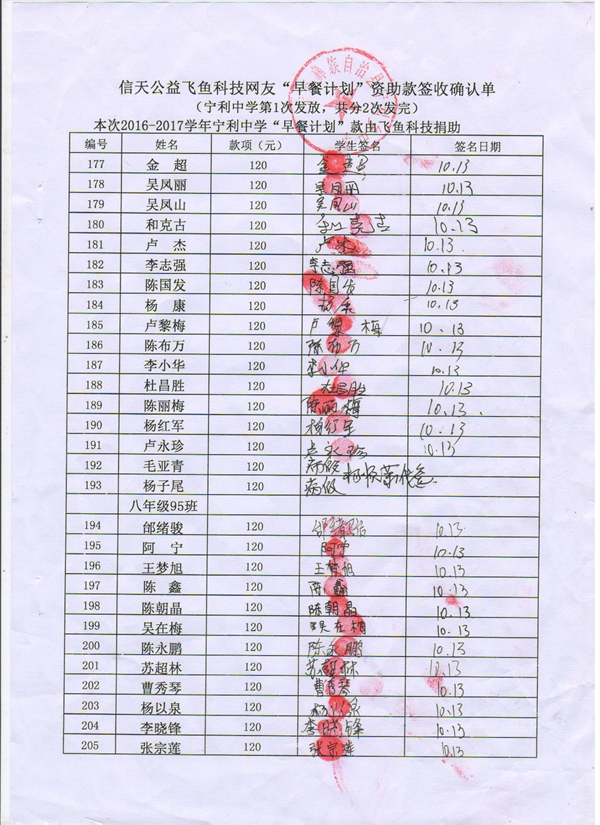 信天公益飞鱼科技网友“早餐计划”资助款签收确认单
（宁利中学第1次发放，共分2次发完）
本次2016-2017学年宁利中学“早餐计划”款由飞鱼科技捐助
编号 姓名 款项（元） 学生签名 签名日期
177 金 超 120 金超 10.13
178 吴凤丽 120 吴凤丽 10.13
179 吴凤山 120 吴凤山 10.13
180 和克古 120 10.13
181 卢 杰 120 卢杰 10.13
182 李志强 120 李志强 10.13
183 陈国发 120 陈国发 10.13
184 杨 康 120 杨康 10.13
185 卢黎梅 120 卢黎梅 10.13
186 陈布万 120 陈布万 10.13
187 李小华 120 李小华 10.13
188 杜昌胜 120 杜昌胜 10.13
189 陈丽梅 120 陈丽梅 10.13.
190 杨红军 120 杨红军 10.13
191 卢永珍 120 卢永珍 10.13
192 毛亚青 120 病假
193 杨子尾 120 病假
八年级95班
194 邰绪骏 120 邰绪骏 10.13
195 阿 宁 120 阿宁 10.13
196 王梦旭 120 王梦旭 10.13
197 陈 鑫 120 陈鑫 10.13
198 陈朝晶 120 陈朝晶 10.13
199 吴在梅 120 吴在梅 10.13
200 陈永鹏 120 陈永鹏 10.13
201 苏超林 120 苏超林 10.13
202 曹秀琴 120 曹秀琴 10.13
203 杨以泉 120 杨以泉 10.13
204 李晓锋 120 李晓锋 10.13
205 张宗莲 120 张宗莲 10.13